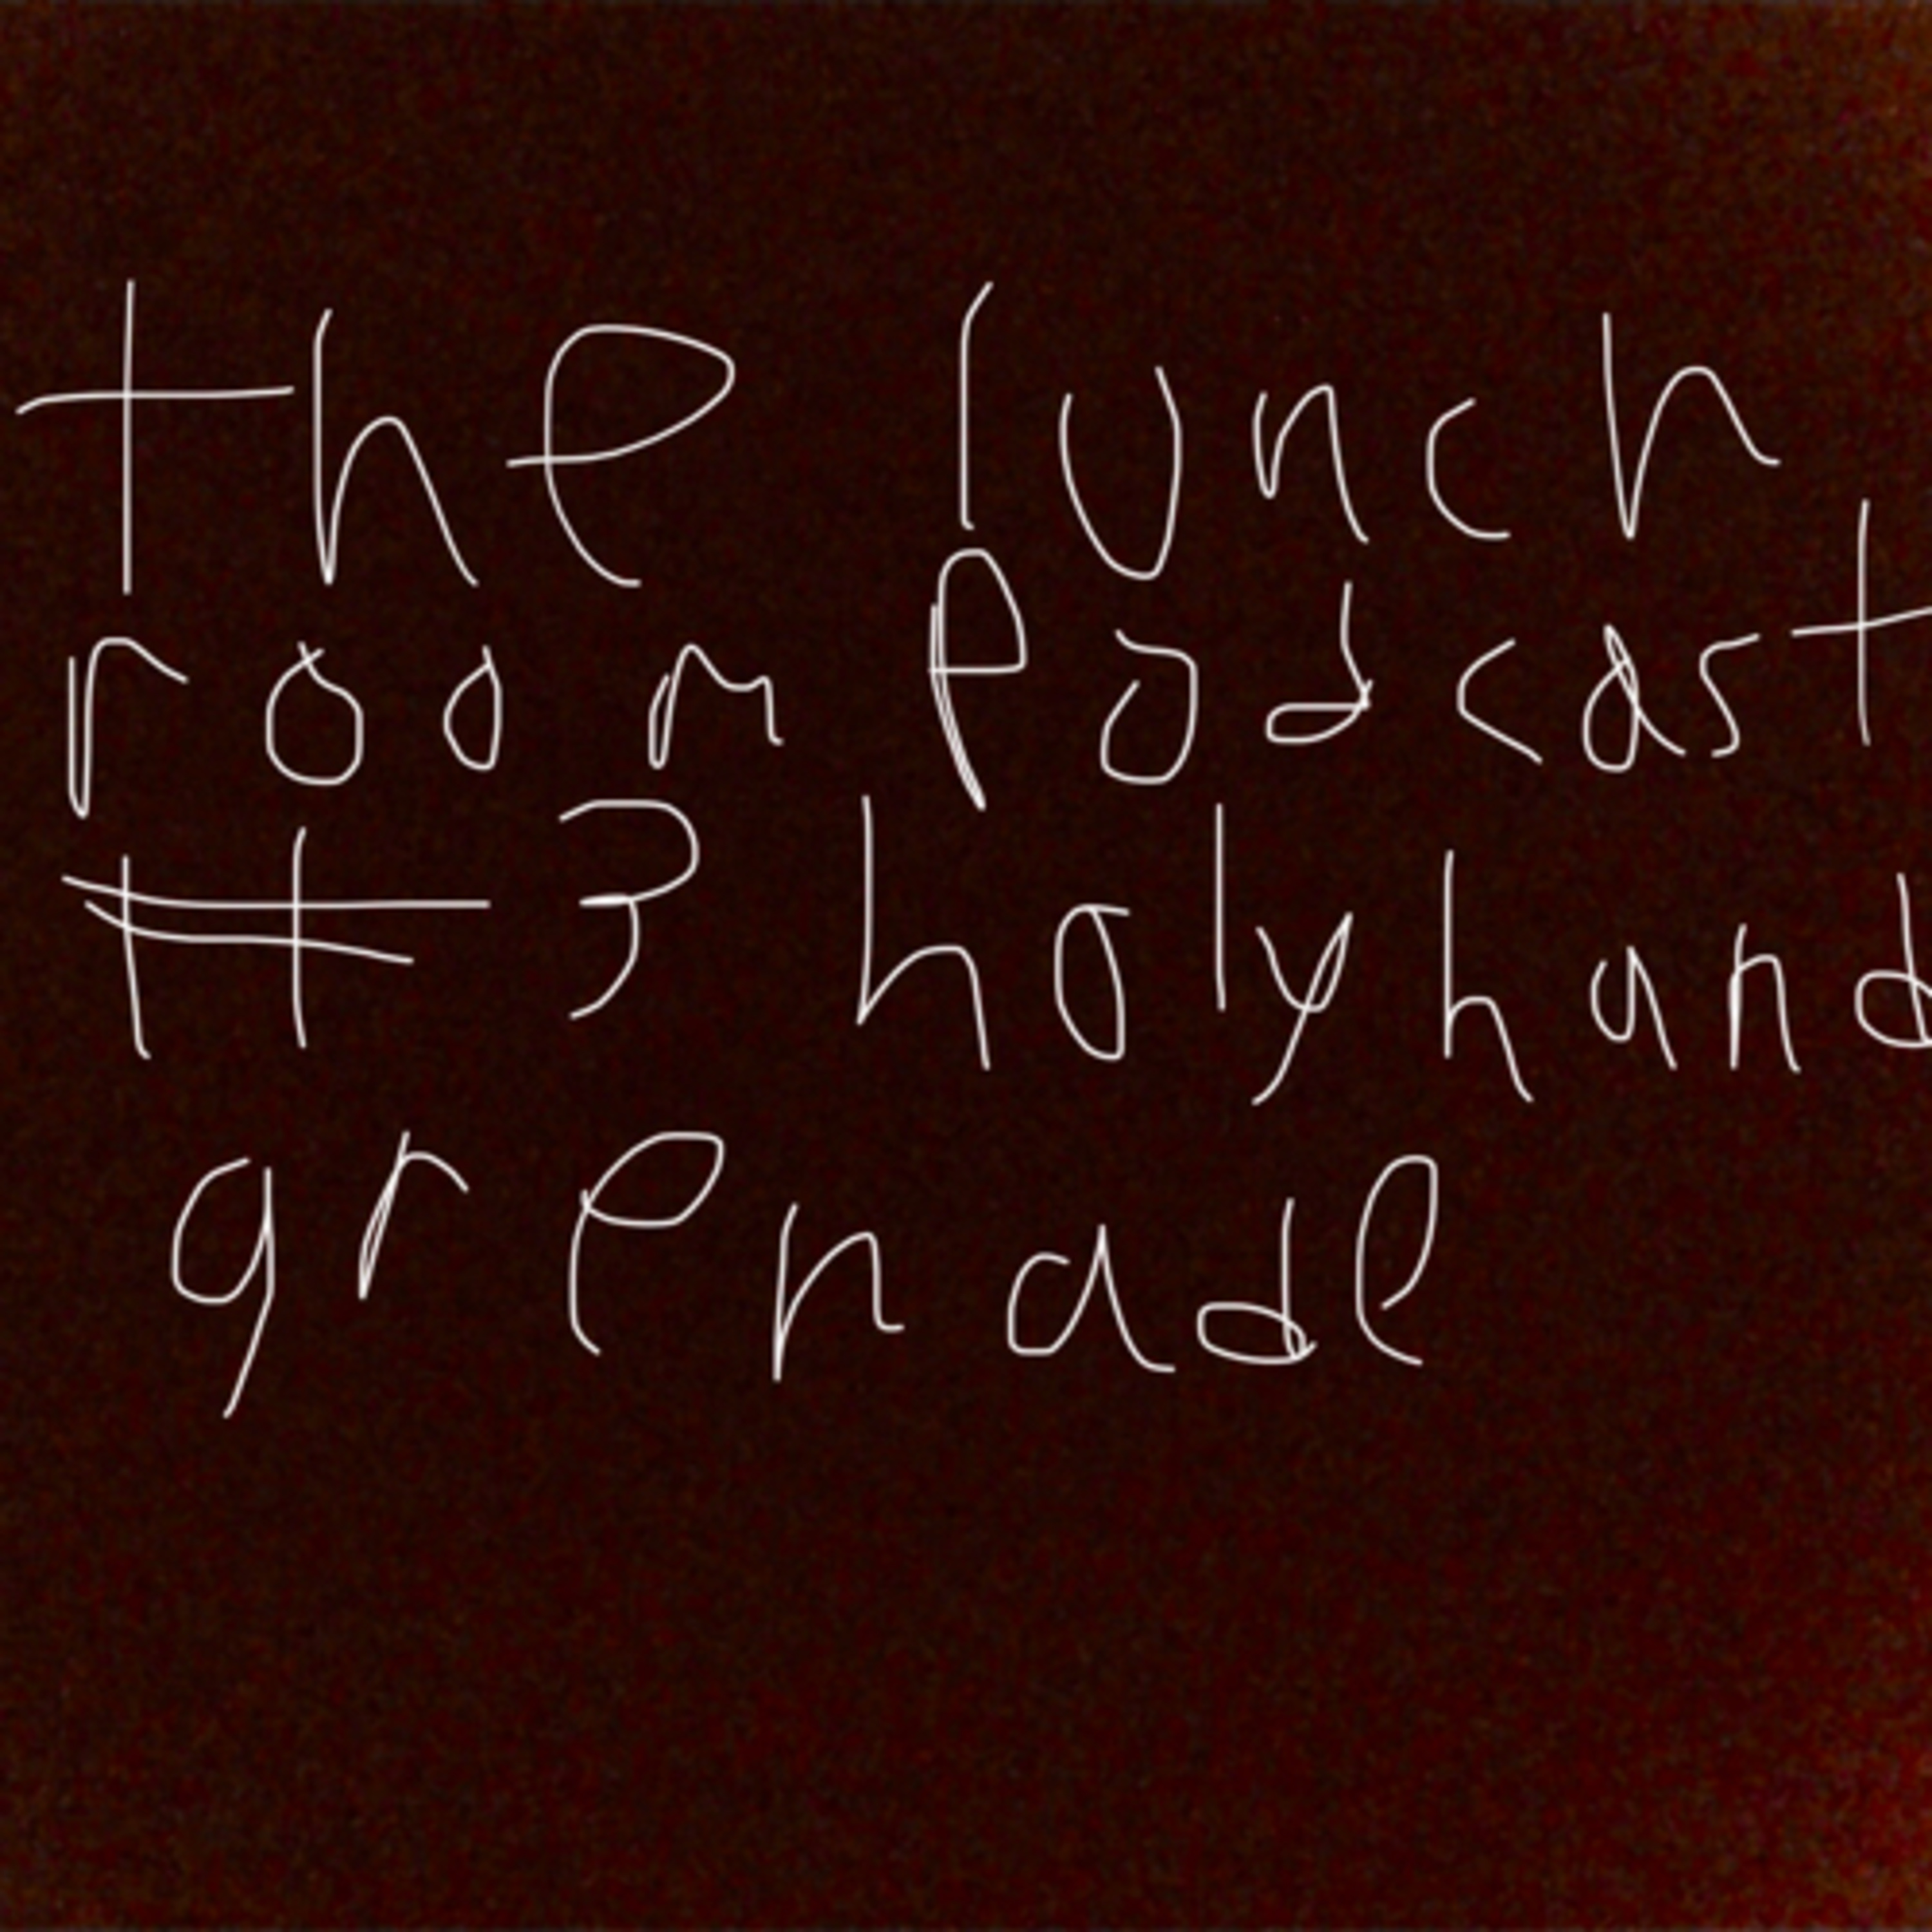 the lunch
room Podcast
#3 holy hand
grenade